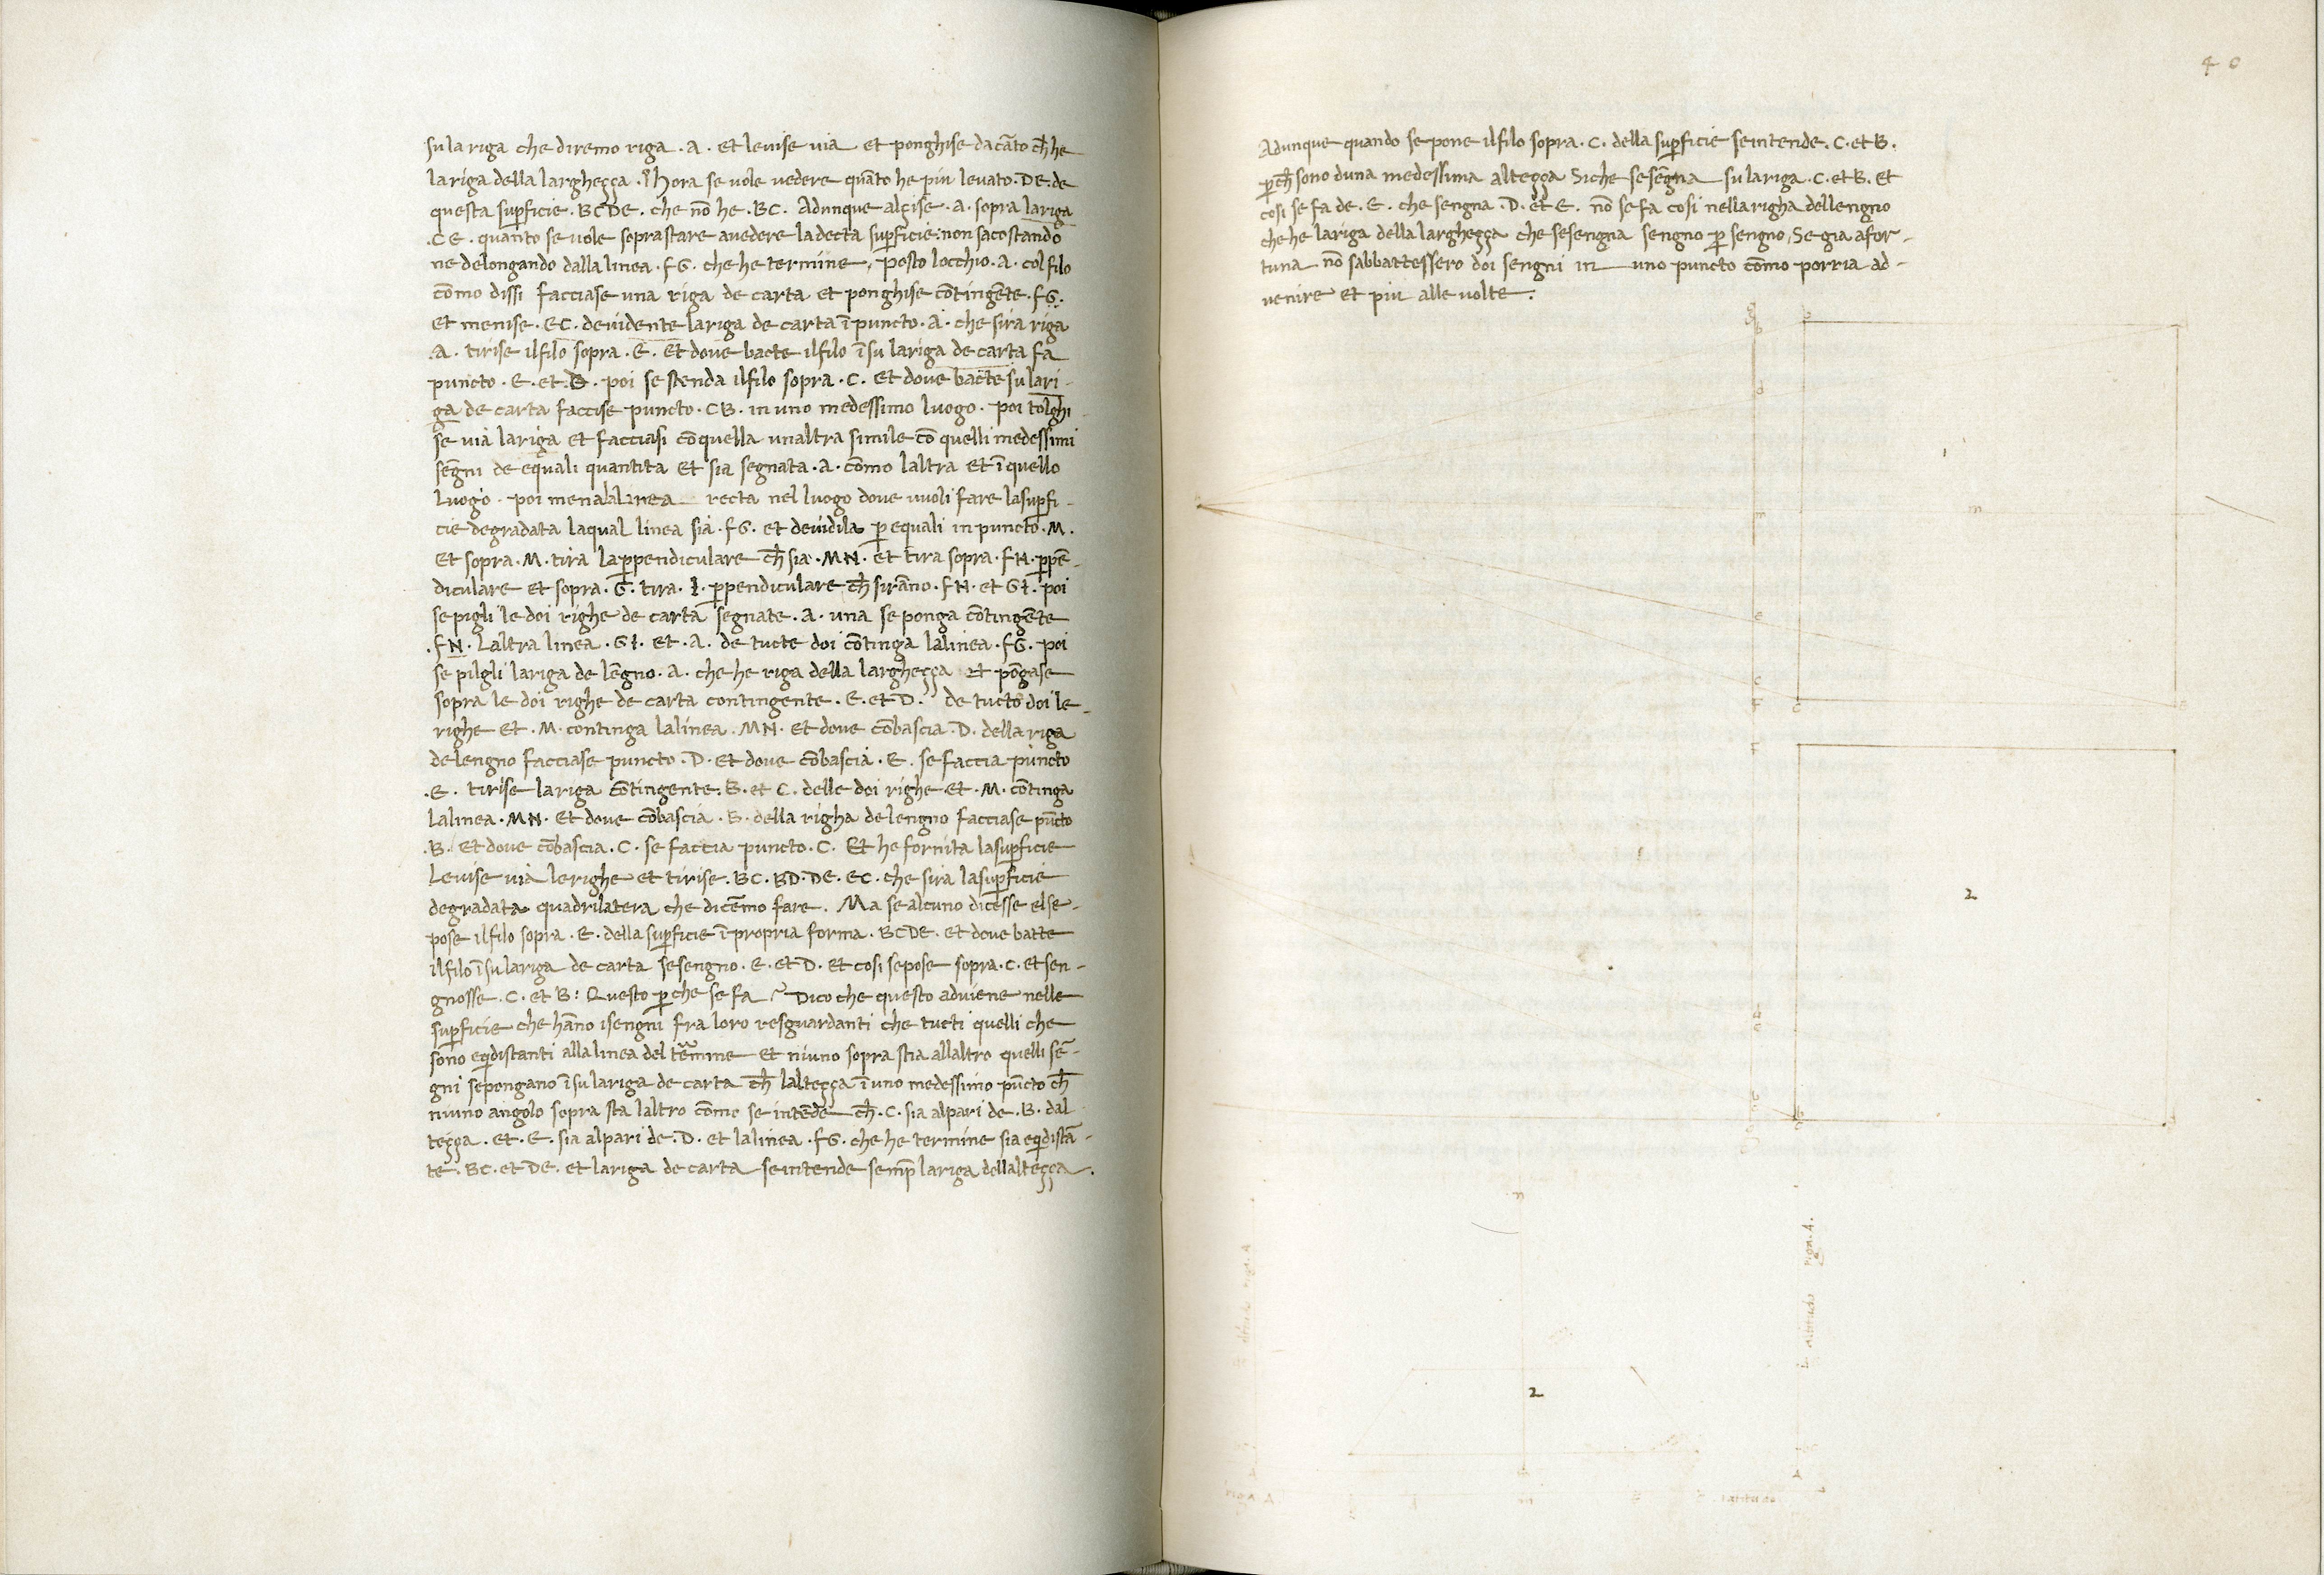 su la riga che diremo riga .A. et levise via et ponghise da cāto ch̄ he
la riga della largheçça. Hora se vole vedere quāto he piu levato .DE. de
questa suꝑficie .BCDE. che nō he .BC. Adunque alçise .A. sopra la riga
.CE. quanto se vole soprastare a vedere la decta suꝑficie: non sacostando
ne delongando dalla linea .FG. che he termine. Posto locchio .A. col filo
cōmo dissi facciase una riga de carta et ponghise cōtingēte .FG.
et menise .EC. devidente la riga de carta ī puncto .A. che sira riga
.A. tirise il filo sopra .E. Et dove bacte il filo ī su la riga de carta fa
puncto .E. et .D. poi se stenda il filo sopra .C. et dove bacte su la ri-
ga de carta faccise puncto .CB. in uno medessimo luogo. poi tolghi
se via la riga et facciasi cō quella unaltra simile cō quelli medessimi
sēgni de equali quantita et sia segnata .A. cōmo laltra et ī quello
luogo. poi mena la linea recta nel luogo dove vuoli fare la suꝑfi-
cie degradata la qual linea sia .FG. et devidila ꝑ equali in puncto .M.
et sopra .M. tira la ꝑpendiculare ch̄ sia .MN. et tira sopra .FN. ꝑpē-
diculare et sopra .G. tira .I. ꝑpendiculare ch̄ sirāno .FN. et GI. poi
se pigli le doi righe de carta segnate .A. una se ponga cōtingēte
.FN. Laltra linea .GI. et .A. de tucte doi cōtinga la linea .FG. poi
se pilgli la riga de lēgno .A. che he riga della largheçça et pōgase
sopra le doi righe de carta contingente .E. et D. de tucto doi le
righe et .M. continga la linea .MN. et dove cōbascia .D. della riga
de lengno facciase puncto .D. et dove cōbascia .E. se faccia puncto
.E. tirise la riga cōtingente .B. et C. delle doi righe et .M. cōtinga
la linea .MN. et dove cōbascia .B. della righa de lengno facciase pūcto
.B. et dove cōbascia .C. se faccia puncto .C. Et he fornita la suꝑficie
Levise via le righe et tirise .BC. BD. DE. EC. che sira la suꝑficie
degradata quadrilatera che dicēmo fare. Ma se alcuno dicesse el se-
pose il filo sopra .E. della suꝑficie ī propria forma .BCDE. et dove batte
il filo ī su la riga de carta se sengno .E. et D. et cosi se pose sopra .C. et sen-
gnosse .C. et B: Questo ꝑ che se fa? Dico che questo adviene nelle
suꝑficie che hāno i sengni fra loro resguardanti che tucti quelli che
sono eqdistanti alla linea del termine et niuno sopra stia allaltro quelli sē-
gni se pongano ī su la riga de carta ch̄ lalteçça ī uno medessimo pūcto ch̄
niuno angolo sopra sta laltro cōmo se intēde ch̄ .C. sia al pari de .B. dal
teçça. et .E. sia al pari de .D. et la linea .FG. che he termine sia eqdistā-
te .BC. et DE. et la riga de carta se intende semp̄ la riga dellalteçça.
40
Adunque quando se pone il filo sopra .C. della suꝑficie se intende .C. et B.
ꝑch̄ sono duna medessima alteçça Siche se sēgna su la riga .C. et B. et
cosi se fa de .E. che sengna .D. et E. nō se fa cosi nella righa de lengno
che he la riga della largheçça che se sengna sengno ꝑ sengno, Se gia a for-
tuna nō sabbattessero doi sengni in uno puncto cōmo porria ad-
venire et piu alle volte.
b
d
m
m
e
c
F
c
F
2
d
e
b
n
riga .A.
riga .A.
2
m
A
A
m